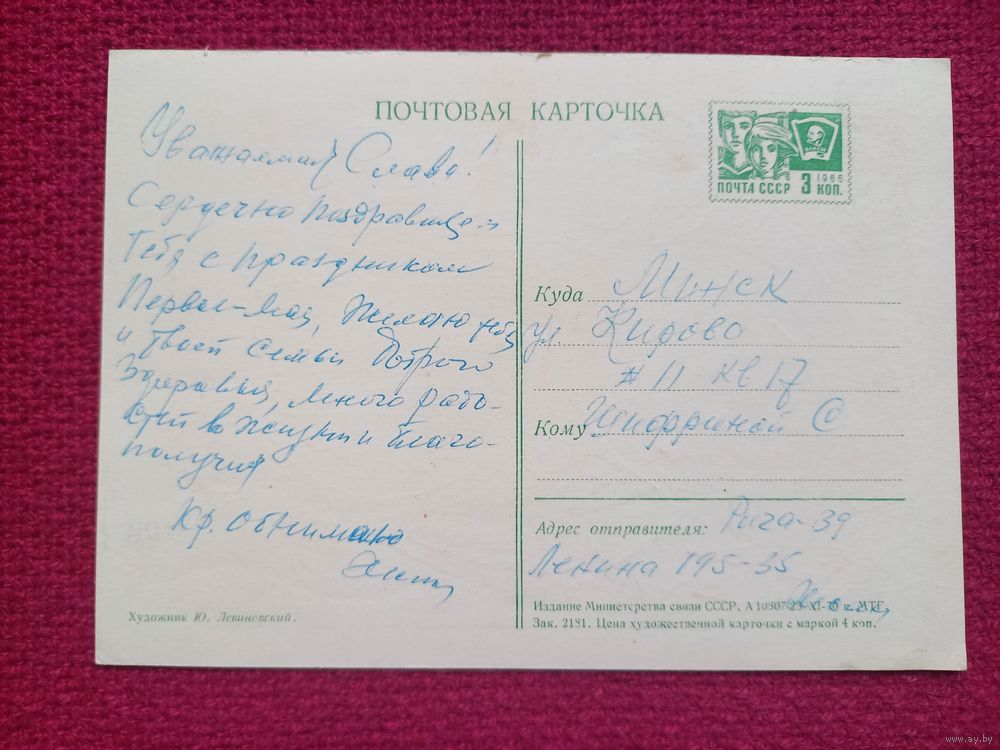 ПОЧТОВАЯ КАРТОЧКА
ПОЧТА СССР 3 1966 КОП.
ВЛКСМ
Уважаемый Слава!
Сердечно поздравляю
Тебя с праздником
Первое-мая, Желаю тебе
и твоей семьи доброго
Здоровья, много радо-
стей в жизни и благо-
получия
Кр. обнимаю
Художник Ю. Левиновский.
Куда Минск
ул. Кирова
# 11 кв 17
Кому Шифриной С
Адрес отправителя: Рига-39
Ленина 195-35
Издание Министерства связи СССР. А 10807 23/XI-70 г. МТГ.
Зак. 2181. Цена художественной карточки с маркой 4 коп.
www.ay.by